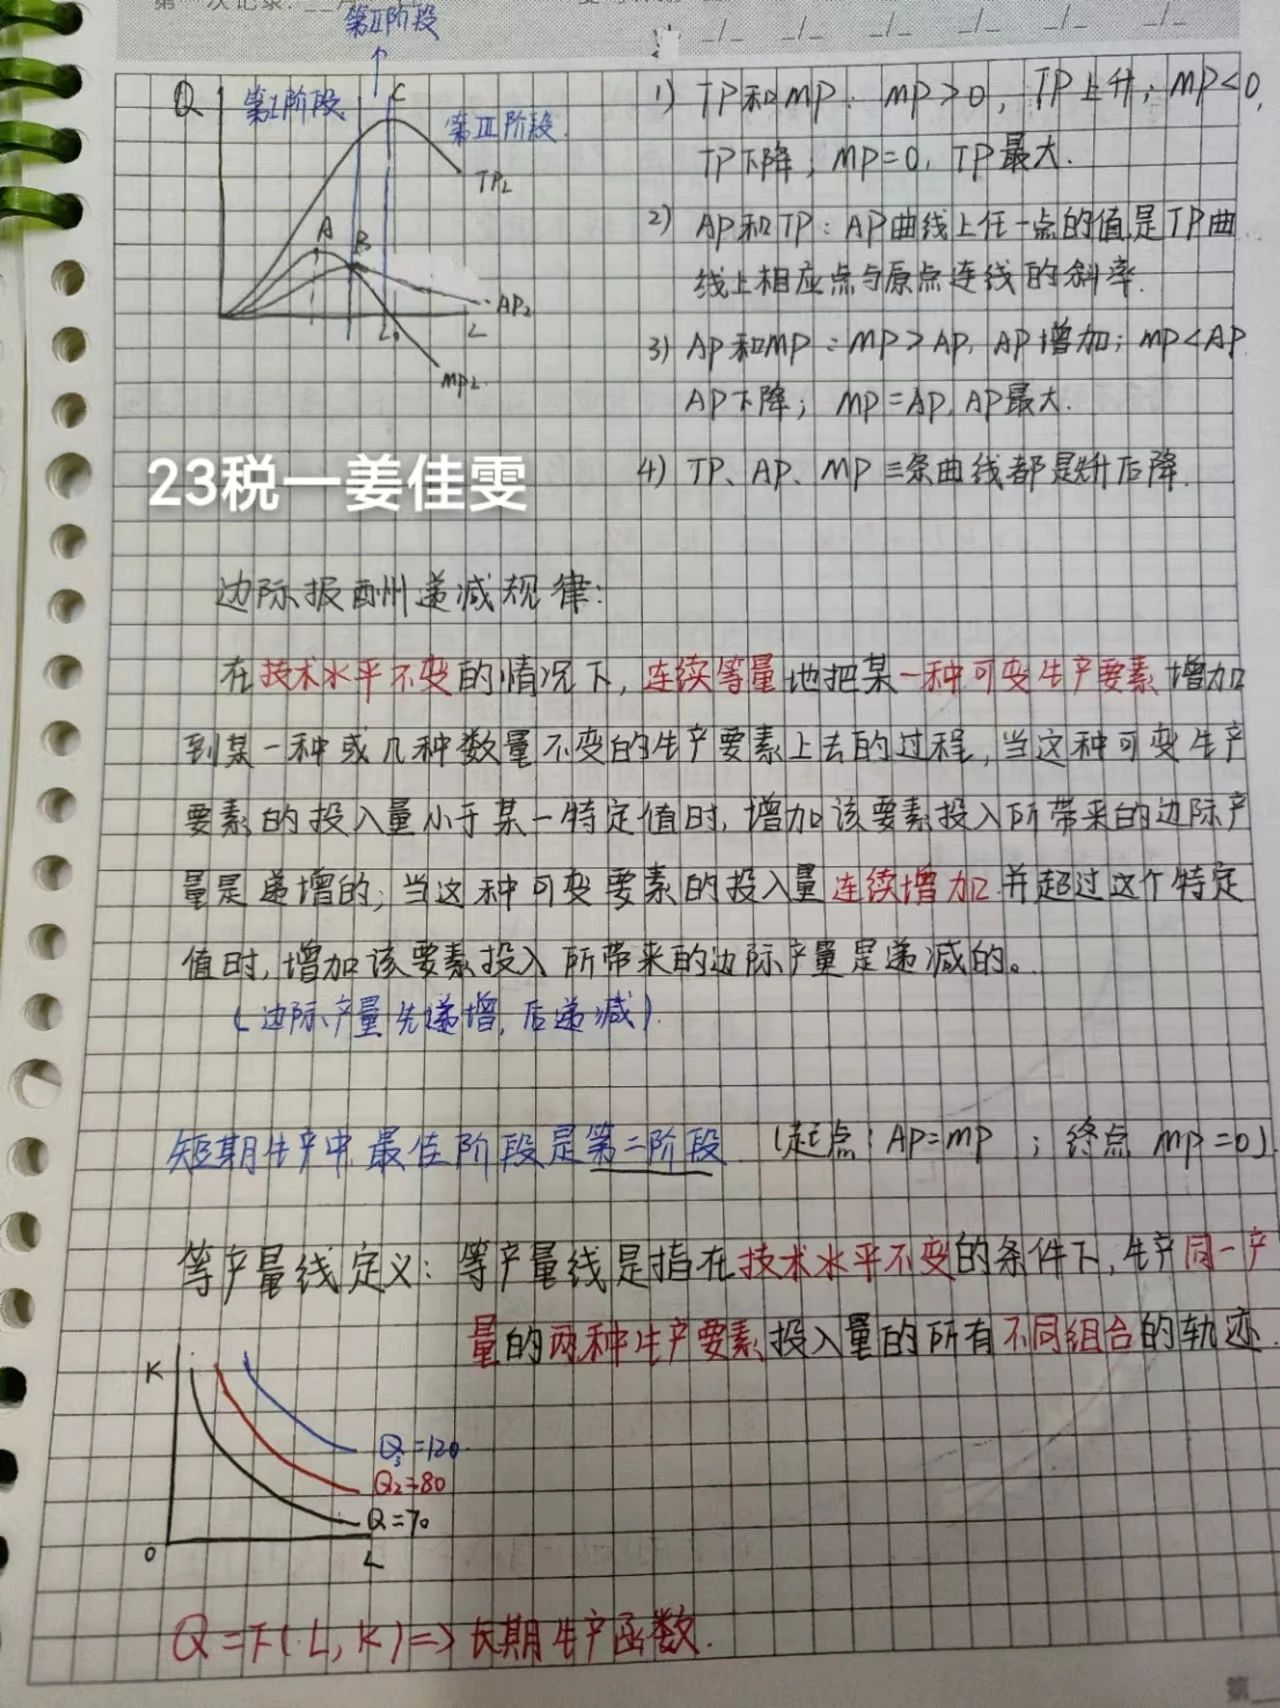 第Ⅱ阶段
Q
第Ⅰ阶段
C
第Ⅲ阶段
TP_L
A
B
AP_L
L_0
L
MP_L
1) TP和MP: MP>0, TP上升; MP<0,
TP下降; MP=0, TP最大.
2) AP和TP: AP曲线上任一点的值是TP曲
线上相应点与原点连线的斜率.
3) AP和MP: MP>AP, AP增加; MP<AP
AP下降; MP=AP, AP最大.
4) TP、AP、MP三条曲线都是先升后降.
23税一姜佳雯
边际报酬递减规律:
在技术水平不变的情况下,连续等量地把某一种可变生产要素增加
到某一种或几种数量不变的生产要素上去的过程,当这种可变生产
要素的投入量小于某一特定值时,增加该要素投入所带来的边际产
量是递增的;当这种可变要素的投入量连续增加并超过这个特定
值时,增加该要素投入所带来的边际产量是递减的。
(边际产量先递增,后递减).
短期生产中最佳阶段是第二阶段 (起点: AP=MP ; 终点 MP=0)
等产量线定义: 等产量线是指在技术水平不变的条件下,生产同一产
量的两种生产要素投入量的所有不同组合的轨迹.
K
Q₃=120
Q₂=80
Q=70
0
L
Q=F(L,K)=>长期生产函数.